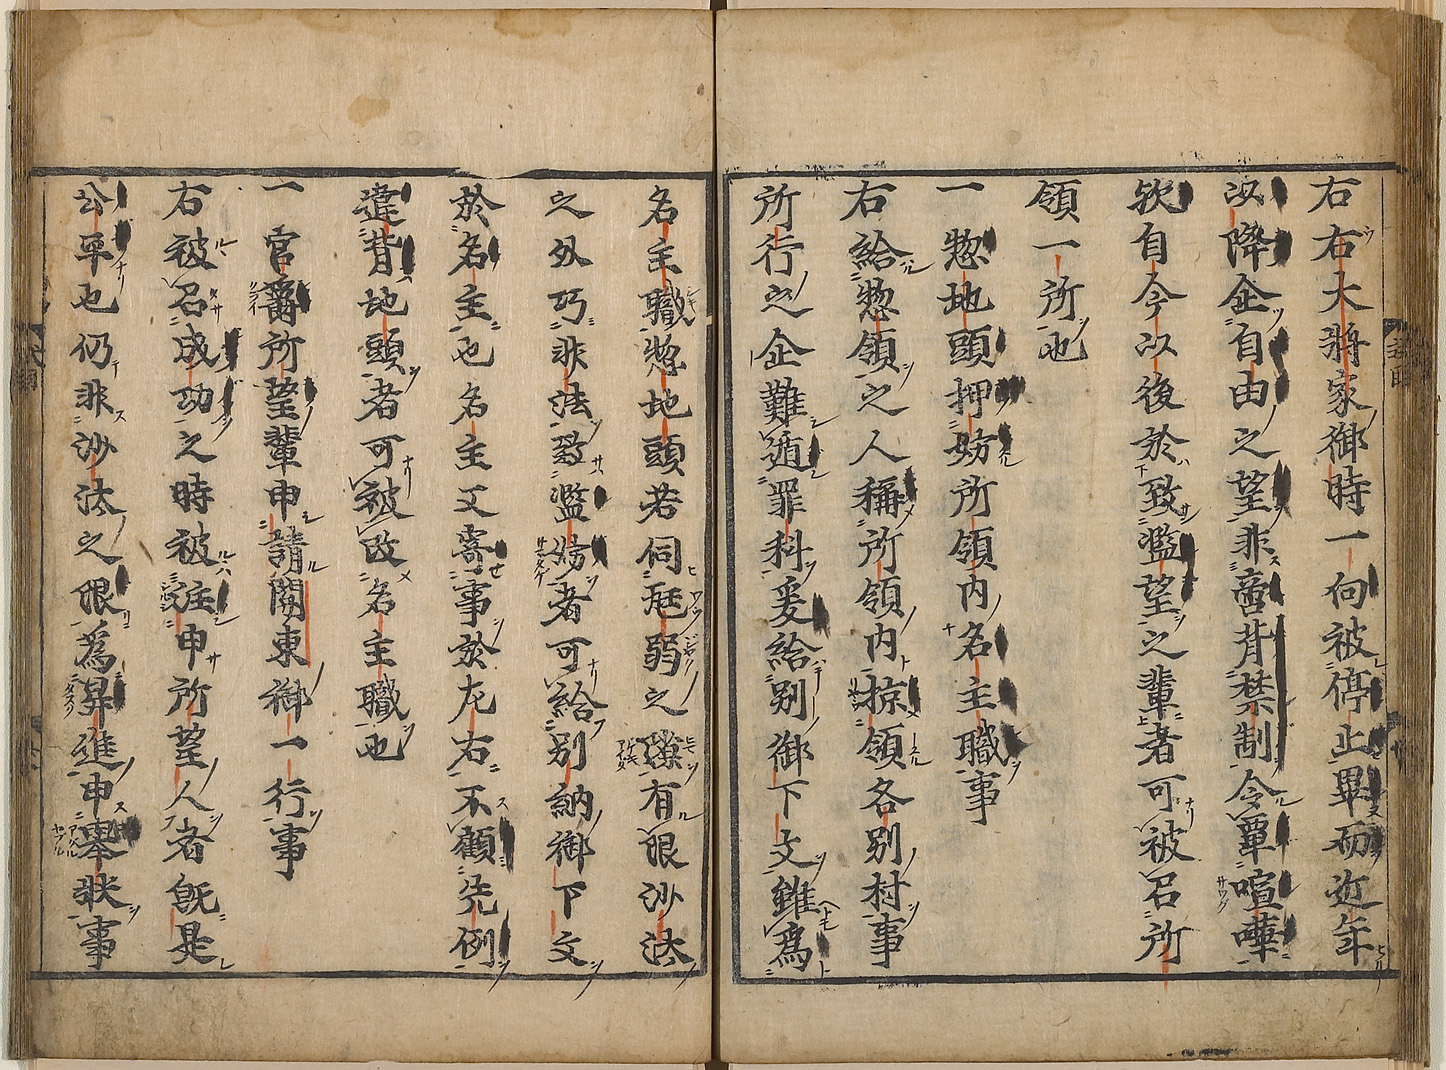 右右大將家御時一向被停止畢而近年
以降企自由之望非啻背禁制令覃喧嘩
歟自今以後於致濫望之輩者可被召所
領一所也
一惣地頭押妨所領内名主職事
右給惣領之人稱所領内掠領各別村事
所行之企難遁罪科爰給別御下文雖爲
名主職惣地頭若伺尫弱之隙有限沙汰
之外巧非法致濫妨者可給別納御下文
於名主也名主又寄事於左右不顧先例
違背地頭者可被改名主職也
一官爵所望輩申請關東御一行事
右被召成功之時被註申所望人者既是
公平也仍非沙汰之限爲昇進申擧狀事